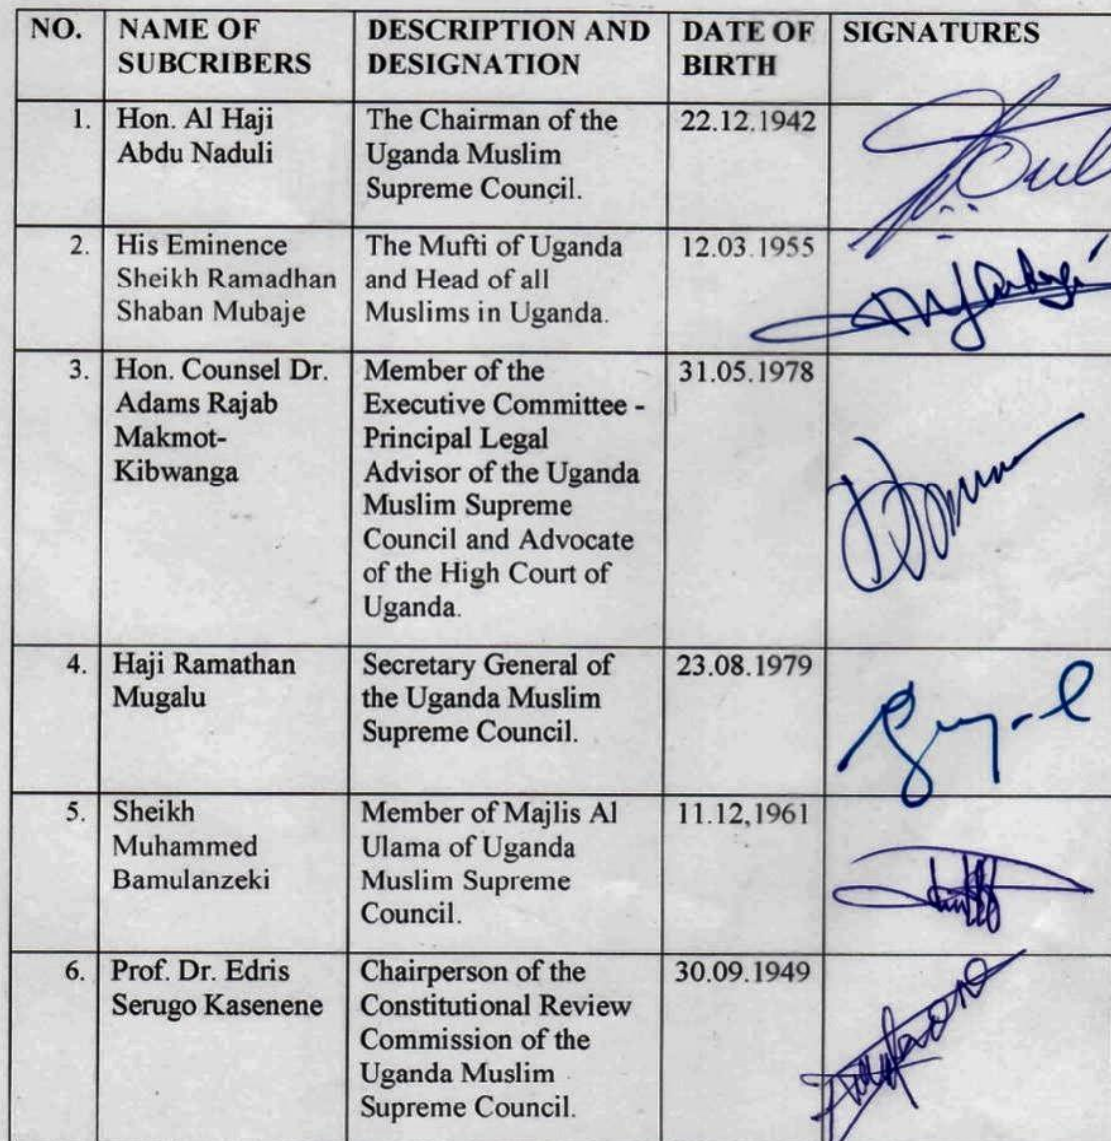 NO.
NAME OF
SUBCRIBERS
DESCRIPTION AND
DESIGNATION
DATE OF
BIRTH
SIGNATURES
1.
Hon. Al Haji
Abdu Naduli
The Chairman of the
Uganda Muslim
Supreme Council.
22.12.1942
2.
His Eminence
Sheikh Ramadhan
Shaban Mubaje
The Mufti of Uganda
and Head of all
Muslims in Uganda.
12.03.1955
3.
Hon. Counsel Dr.
Adams Rajab
Makmot-
Kibwanga
Member of the
Executive Committee -
Principal Legal
Advisor of the Uganda
Muslim Supreme
Council and Advocate
of the High Court of
Uganda.
31.05.1978
4.
Haji Ramathan
Mugalu
Secretary General of
the Uganda Muslim
Supreme Council.
23.08.1979
5.
Sheikh
Muhammed
Bamulanzeki
Member of Majlis Al
Ulama of Uganda
Muslim Supreme
Council.
11.12,1961
6.
Prof. Dr. Edris
Serugo Kasenene
Chairperson of the
Constitutional Review
Commission of the
Uganda Muslim
Supreme Council.
30.09.1949